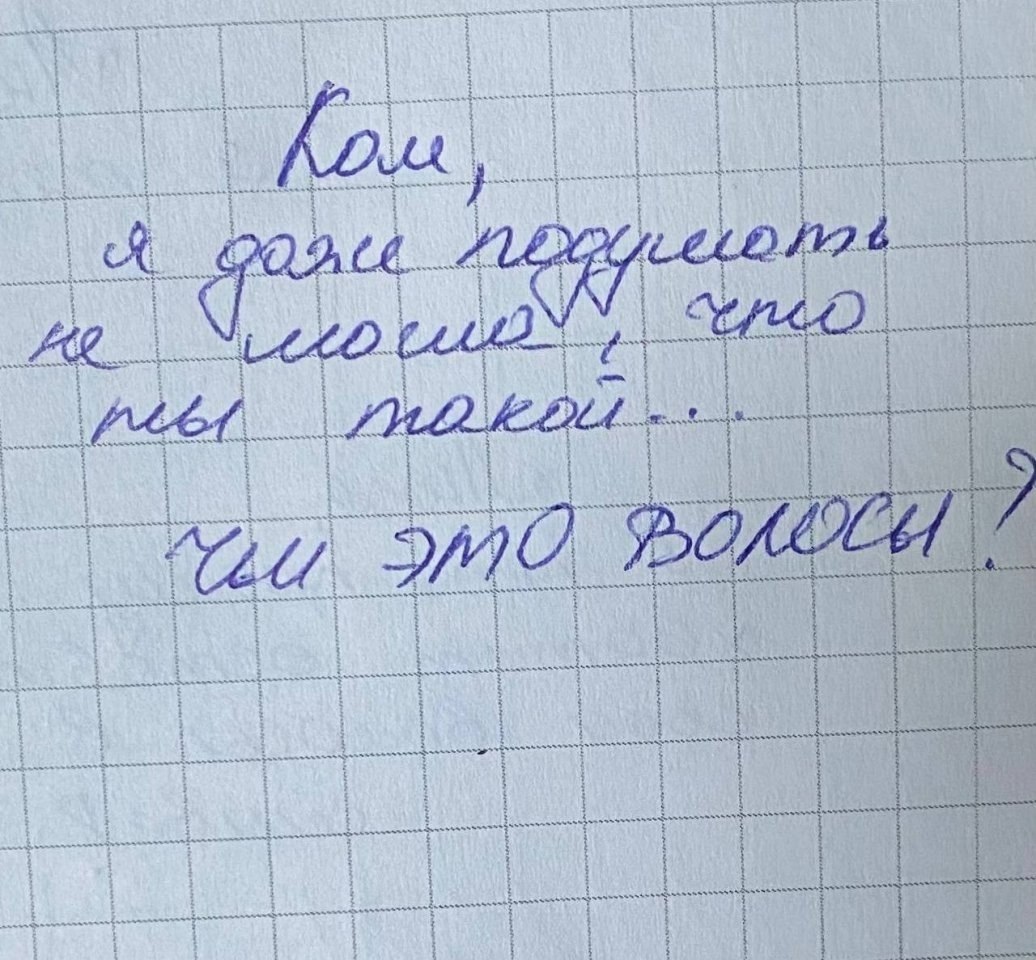 Кам,
я даже подумать
не могла, что
ты такой...
Чьи это волосы?